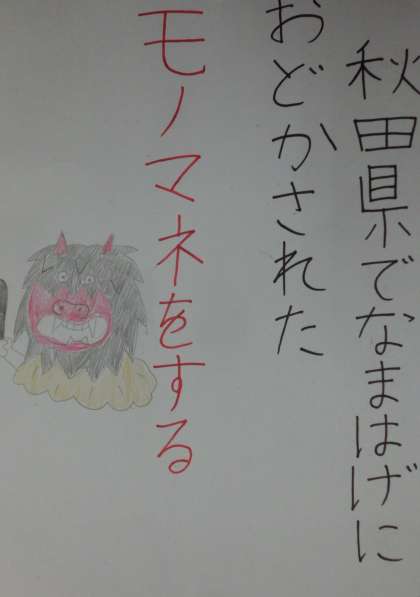 秋田県でなまはげに
おどかされた
モノマネをする